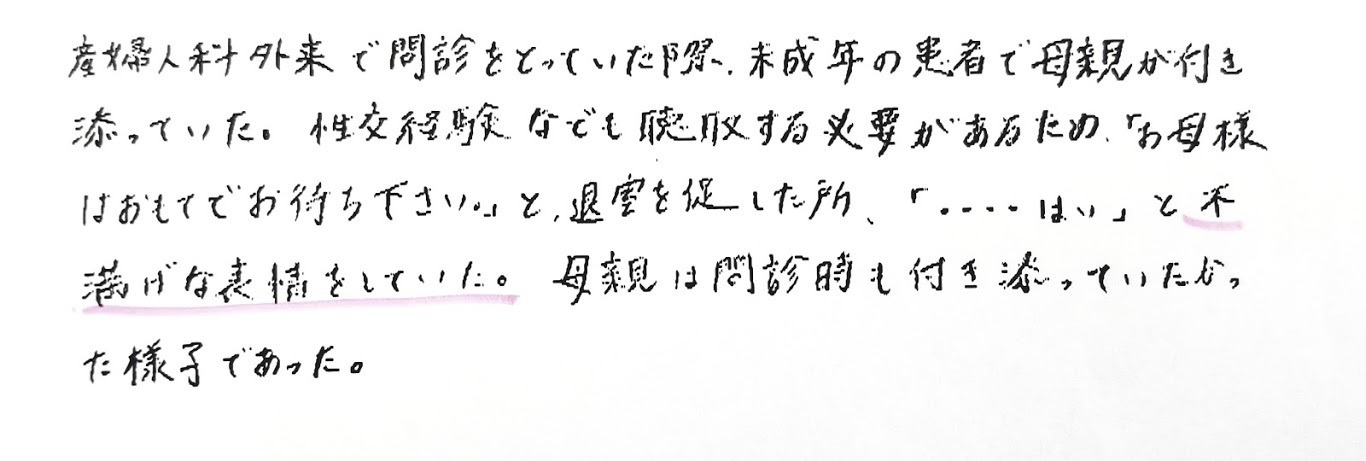 産婦人科外来で問診をとっていた際、未成年の患者で母親が付き
添っていた。性交経験なども聴取する必要があるため、「お母様
はおもてでお待ち下さい。」と、退室を促した所、「・・・・はい」と不
満げな表情をしていた。母親は問診時も付き添っていたかっ
た様子であった。